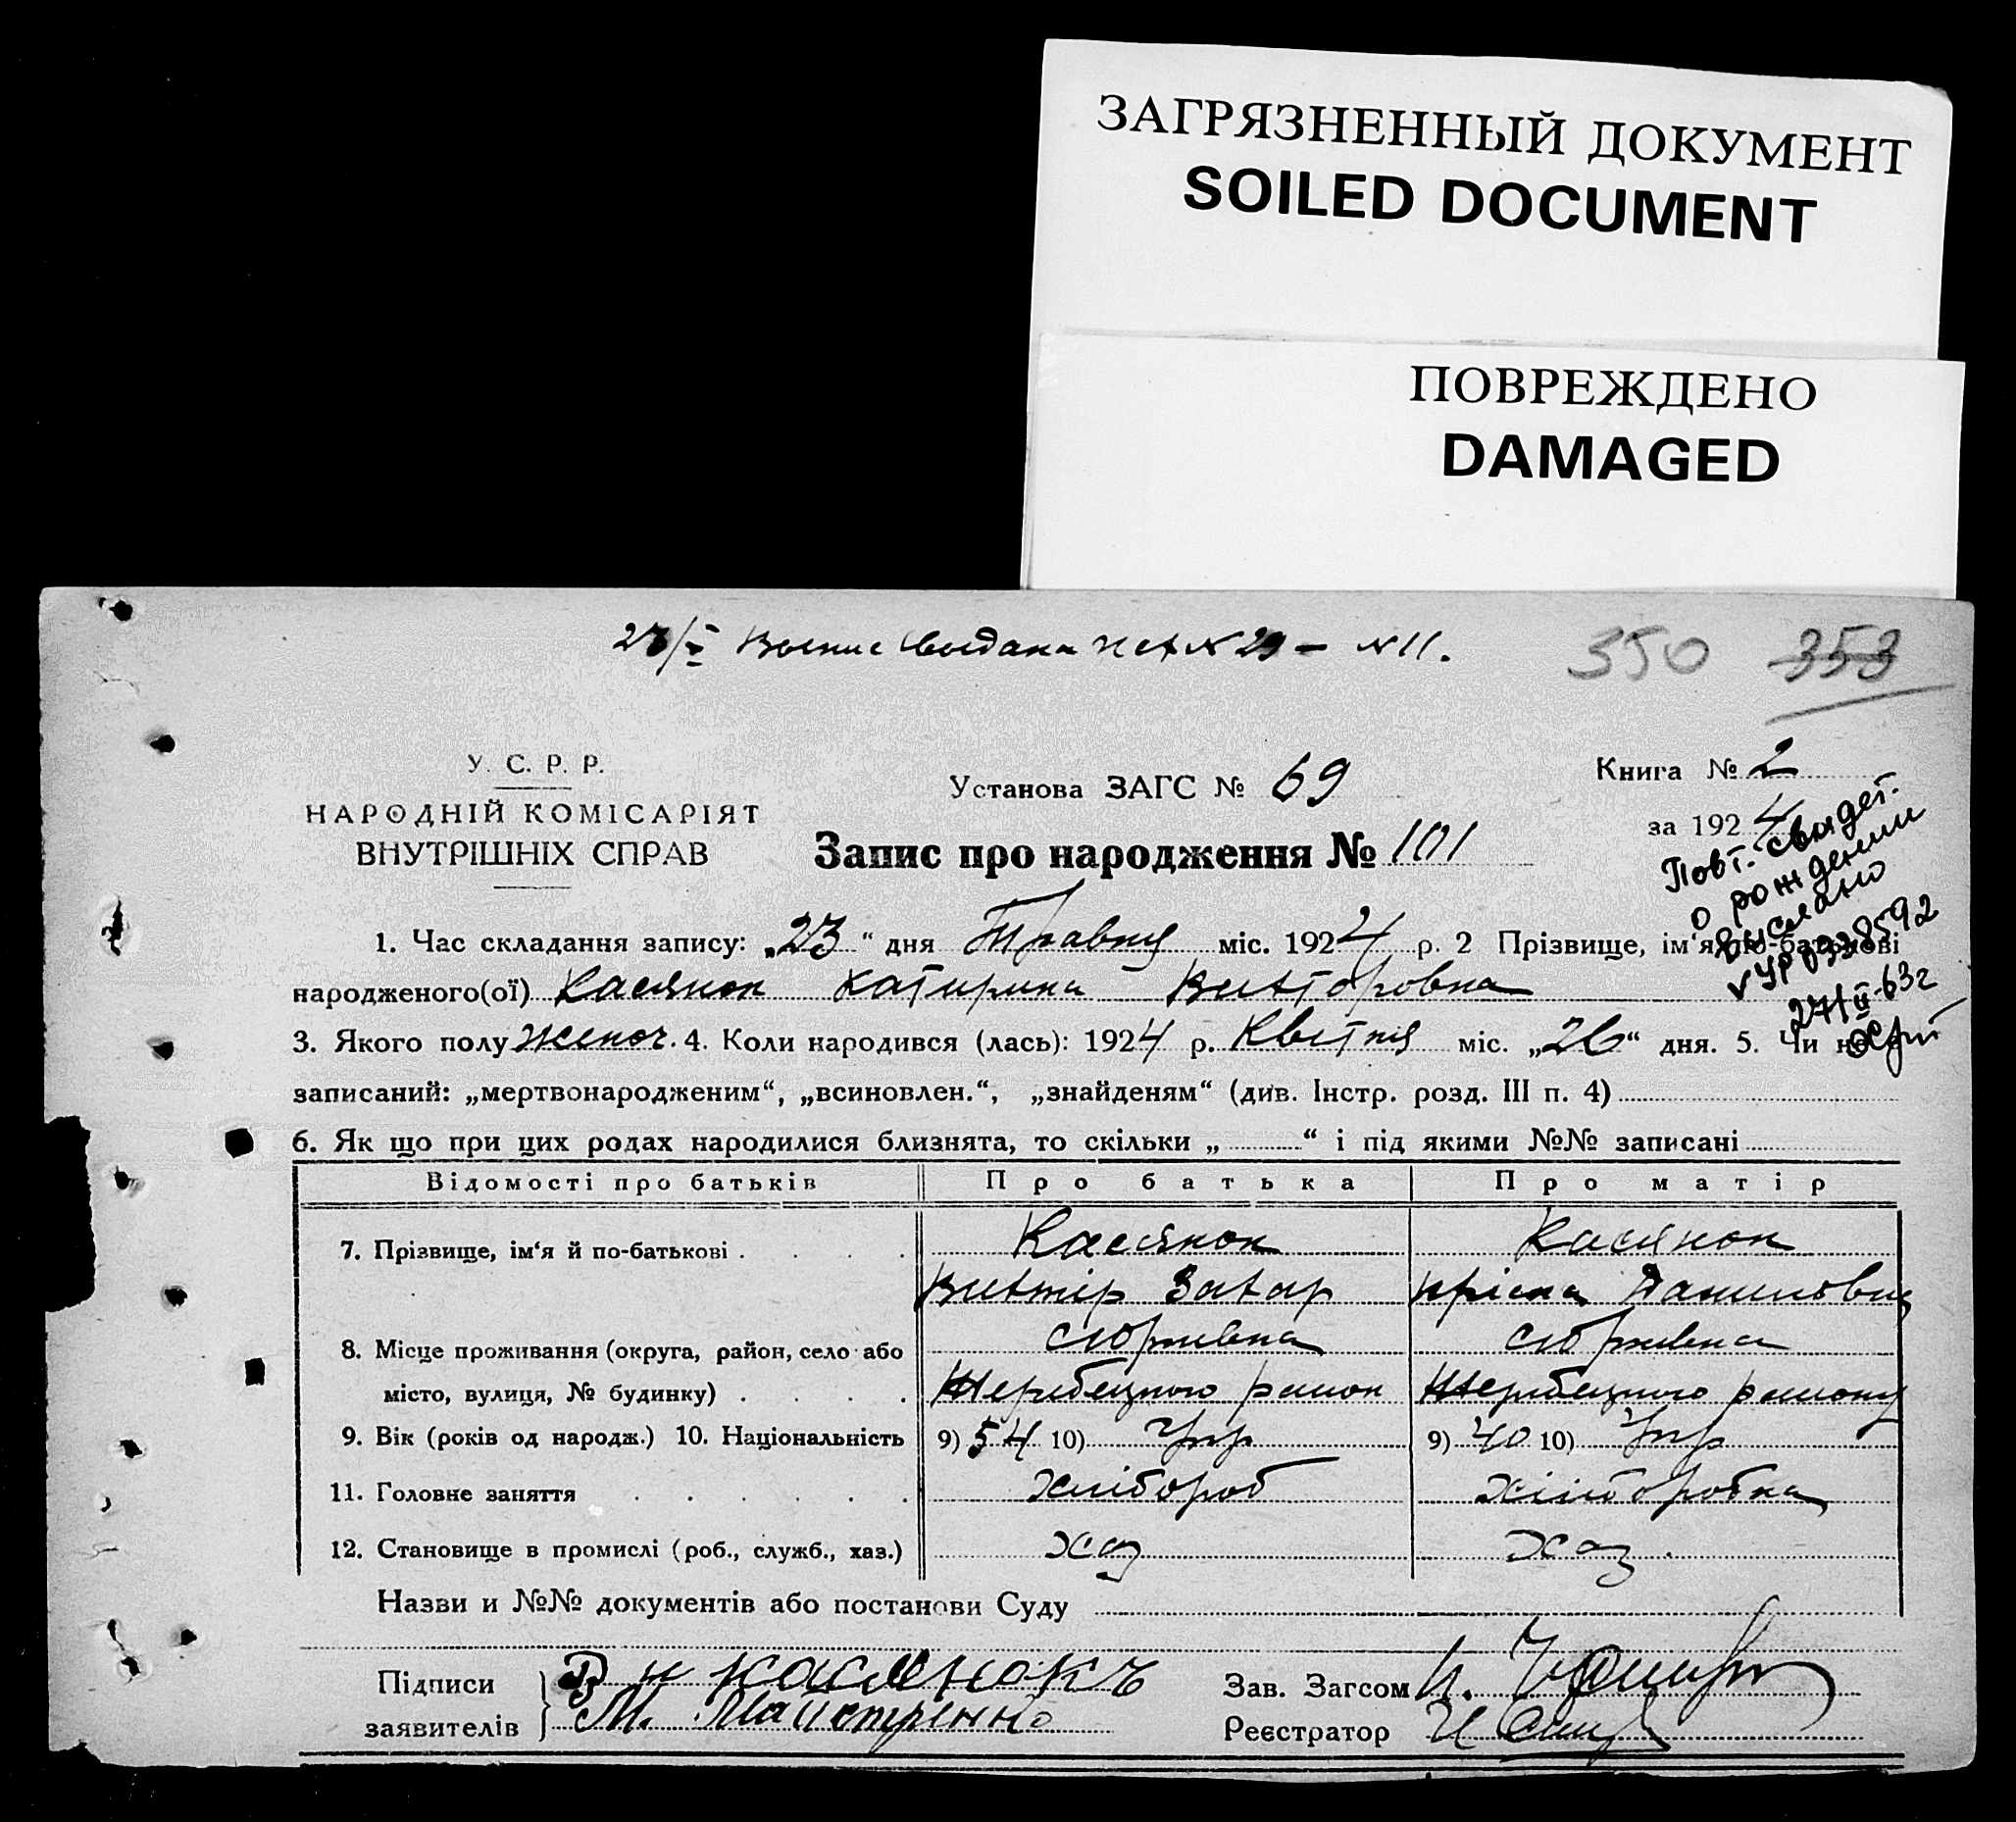 ЗАГРЯЗНЕННЫЙ ДОКУМЕНТ
SOILED DOCUMENT
ПОВРЕЖДЕНО
DAMAGED
350 353
У. С. Р. Р.
НАРОДНІЙ КОМІСАРІЯТ
ВНУТРІШНІХ СПРАВ
Установа ЗАГС № 69
Запис про народження № 101
Книга № 2
за 1924
Повт. свидет.
о рождении
выслано
VУР 0338592
27/II-63г
1. Час складання запису: „23“ дня Травня міс. 1924 р. 2 Прізвище, ім‘я по-батькові
народженого(ої) Касянюк Катирина Викторовна
3. Якого полу женоч. 4. Коли народився (лась): 1924 р. Квітня міс. „26“ дня. 5. Чи не
записаний: „мертвонародженим“, „всиновлен.“, „знайденям“ (див. Інстр. розд. III п. 4)
6. Як що при цих родах народилися близнята, то скільки „ “ і під якими №№ записані
Відомості про батьків Про батька Про матір
7. Прізвище, ім‘я й по-батькові Касянюк Касянюк
Виктір Захар Даниловна
8. Місце проживання (округа, район, село або
місто, вулиця, № будинку)
9. Вік (років од народж.) 10. Національність 9) 54 10) Укр 9) 40 10) Укр
11. Головне заняття хлібороб хліборобка
12. Становище в промислі (роб., служб., хаз.) хаз хаз.
Назви и №№ документів або постанови Суду
Підписи заявителів Касянюкъ
М.
Зав. Загсом
Реєстратор